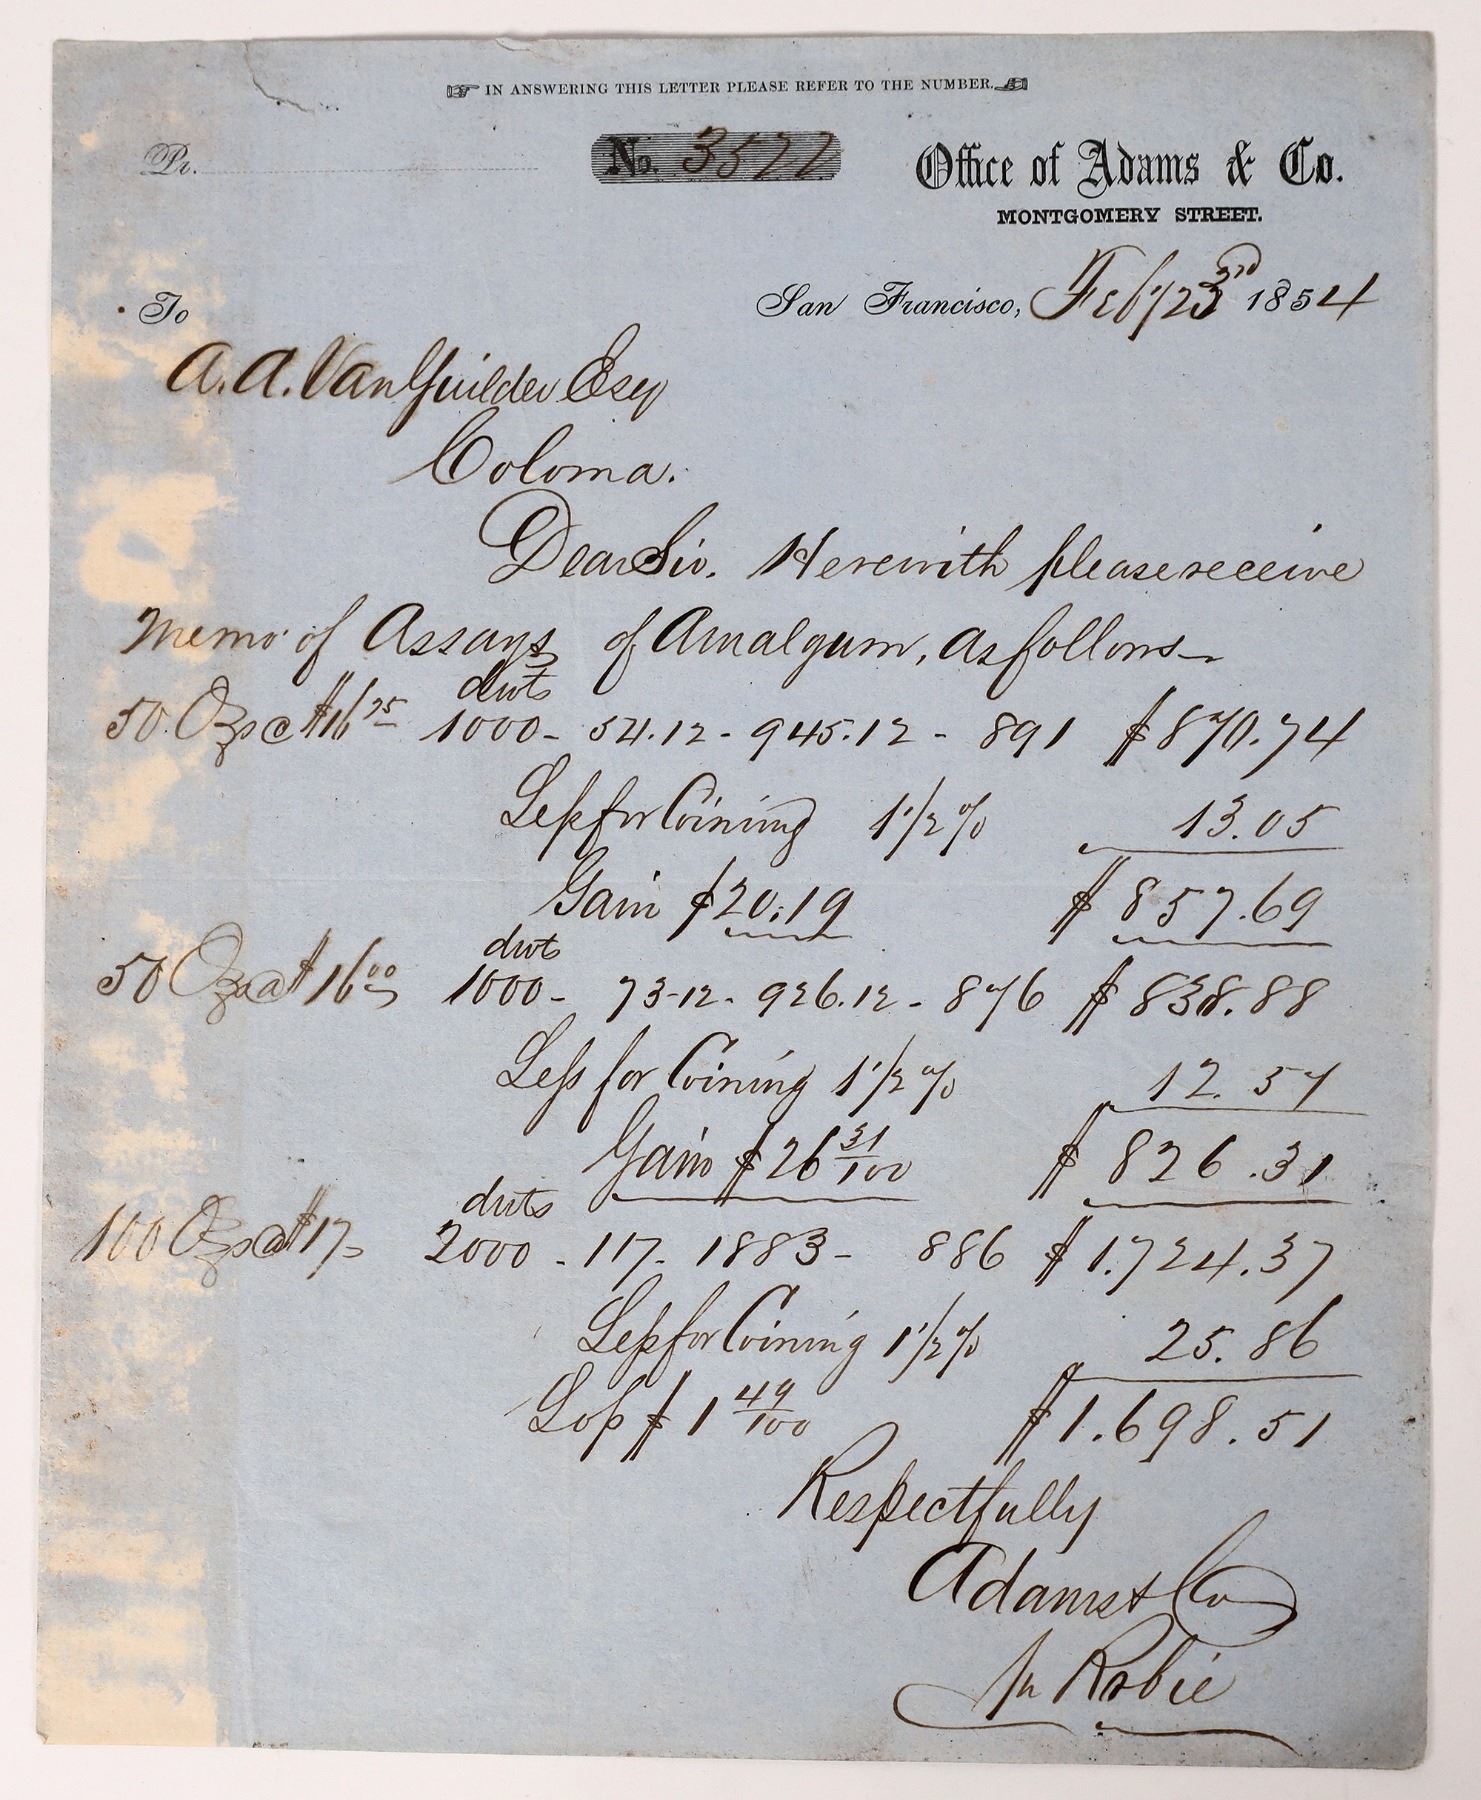 IN ANSWERING THIS LETTER PLEASE REFER TO THE NUMBER.
Pr. No. 3522 Office of Adams & Co.
MONTGOMERY STREET.
San Francisco, Feby 23rd 1854
To
A. A. VanGuilder Esq
Coloma.
Dear Sir. Herewith please receive
Memo of Assays of Amalgum, as follows
dwts
50 Ozs @ $16 25 1000 - 54.12 - 945.12 - 891 $870.74
Less for Coining 1 1/2 % 13.05
Gain $20.19 $857.69
dwts
50 Ozs @ $16 00 1000 - 73-12 - 926.12 - 876 $838.88
Less for Coining 1 1/2 % 12.57
Gain $26 31/100 $826.31
dwts
100 Ozs @ $17 2000 - 117 - 1883 - 886 $1.724.37
Less for Coining 1 1/2 % 25.86
Loss $1 49/100 $1.698.51
Respectfully
Adams & Co
Robie